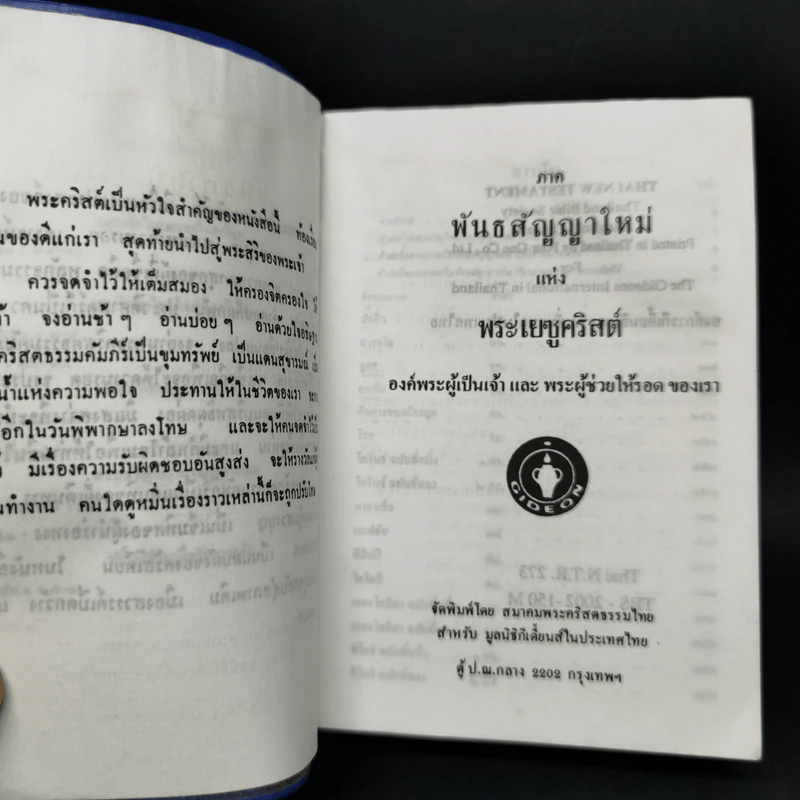 พระคริสต์เป็นหัวใจสำคัญของหนังสือนี้
นของดีแก่เรา สุดท้ายนำไปสู่พระสิริของพระเจ้า
ควรจดจำไว้ให้เต็มสมอง ให้ครองจิตครองใจ
จงอ่านช้าๆ อ่านบ่อยๆ อ่านด้วยใจอธิษฐาน
คริสตธรรมคัมภีร์เป็นขุมทรัพย์ เป็นแดนสุขารมณ์
น้ำแห่งความพอใจ ประทานให้ในชีวิตของเรา
อีกในวันพิพากษาลงโทษ และจะให้คนจดจำไว้
มีเรื่องความรับผิดชอบอันสูงส่ง จะให้รางวัล
นทำงาน คนใดดูหมิ่นเรื่องราวเหล่านี้ก็จะถูกปรับโทษ
ภาค
พันธสัญญาใหม่
แห่ง
พระเยซูคริสต์
องค์พระผู้เป็นเจ้า และ พระผู้ช่วยให้รอด ของเรา
GIDEON
จัดพิมพ์โดย สมาคมพระคริสตธรรมไทย
สำหรับ มูลนิธิกีเดี้ยนส์ในประเทศไทย
ตู้ ป.ณ.กลาง 2202 กรุงเทพฯ